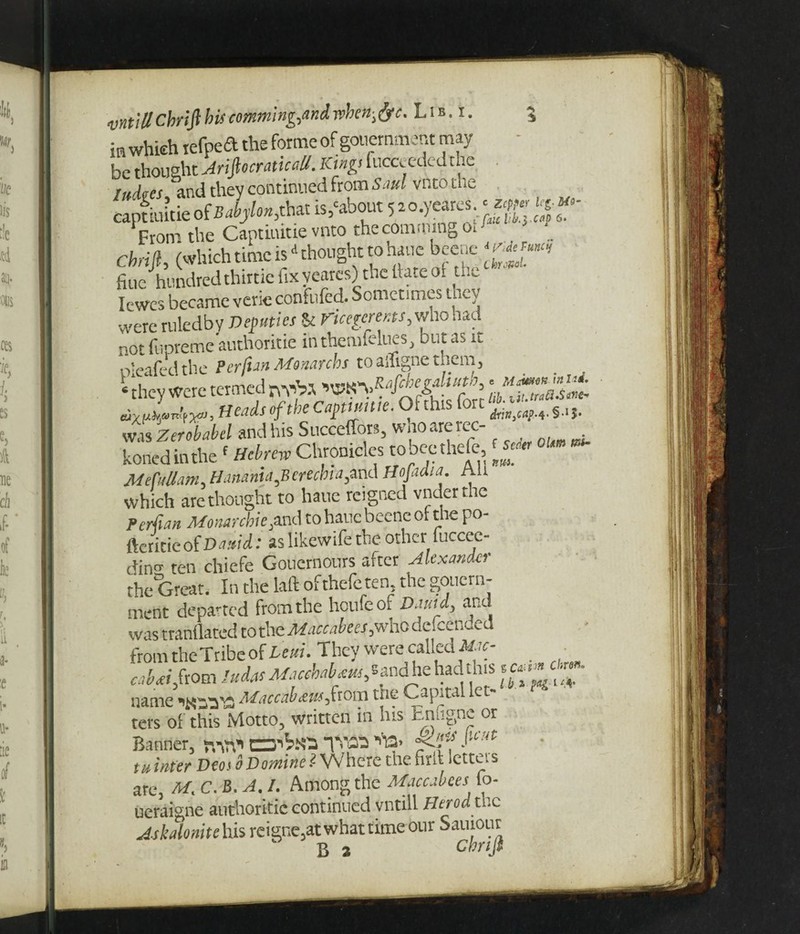 vntill Christ his comming, and when, &c. LIB. 1. 3
in which respect the forme of gouernment may
be thought Aristocraticall. Kings succeeded the
Iudges, and they continued from Saul vnto the
captiuitie of Babylon, that is, ᶜabout 520. yeares. ᶜ Zepper leg. Mo-
From the Captiuitie vnto the comming of saic lib. 3. cap 6.
Christ, (which time is ᵈ thought to haue beene ᵈ Vide Funcij
fiue hundred thirtie six yeares) the state of the Chronol.
Iewes became verie confused. Sometimes they
were ruled by Deputies & Vicegerents, who had
not supreme authoritie in themselues, but as it
pleased the Persian Monarchs to assigne them,
ᵉ they were termed ראשי גליות, Rasche galiuth, ᵉ Maimon in Iad.
αἰχμαλωτάρχαι, Heads of the Captiuitie. Of this sort lib. vit. tract. Sane-
was Zerobabel and his Successors, who are rec- drin, cap. 4. §. 13.
koned in the ᶠ Hebrew Chronicles to bee these, ᶠ Seder Olam mi-
Mesullam, Hanania, Berechia, and Hosadia. All nus.
which are thought to haue reigned vnder the
Persian Monarchie, and to haue beene of the po-
steritie of Dauid: as likewise the other succee-
ding ten chiefe Gouernours after Alexander
the Great. In the last of these ten, the gouern-
ment departed from the house of Dauid, and
was translated to the Maccabees, who descended
from the Tribe of Leui. They were called Mac-
cabæi, from Iudas Macchabæus, ᵍ and he had this ᵍ Carion Chron.
name מכבאי Maccabæus, from the Capital let- lib. 2 pag. 144.
ters of this Motto, written in his Ensigne or
Banner, מי כמוך באלים יהוה, Quis sicut
tu inter Deos ô Domine? Where the first letters
are, M. C. B. A. I. Among the Maccabees so-
ueraigne authoritie continued vntill Herod the
Askalonite his reigne, at what time our Sauiour
B 2 Christ